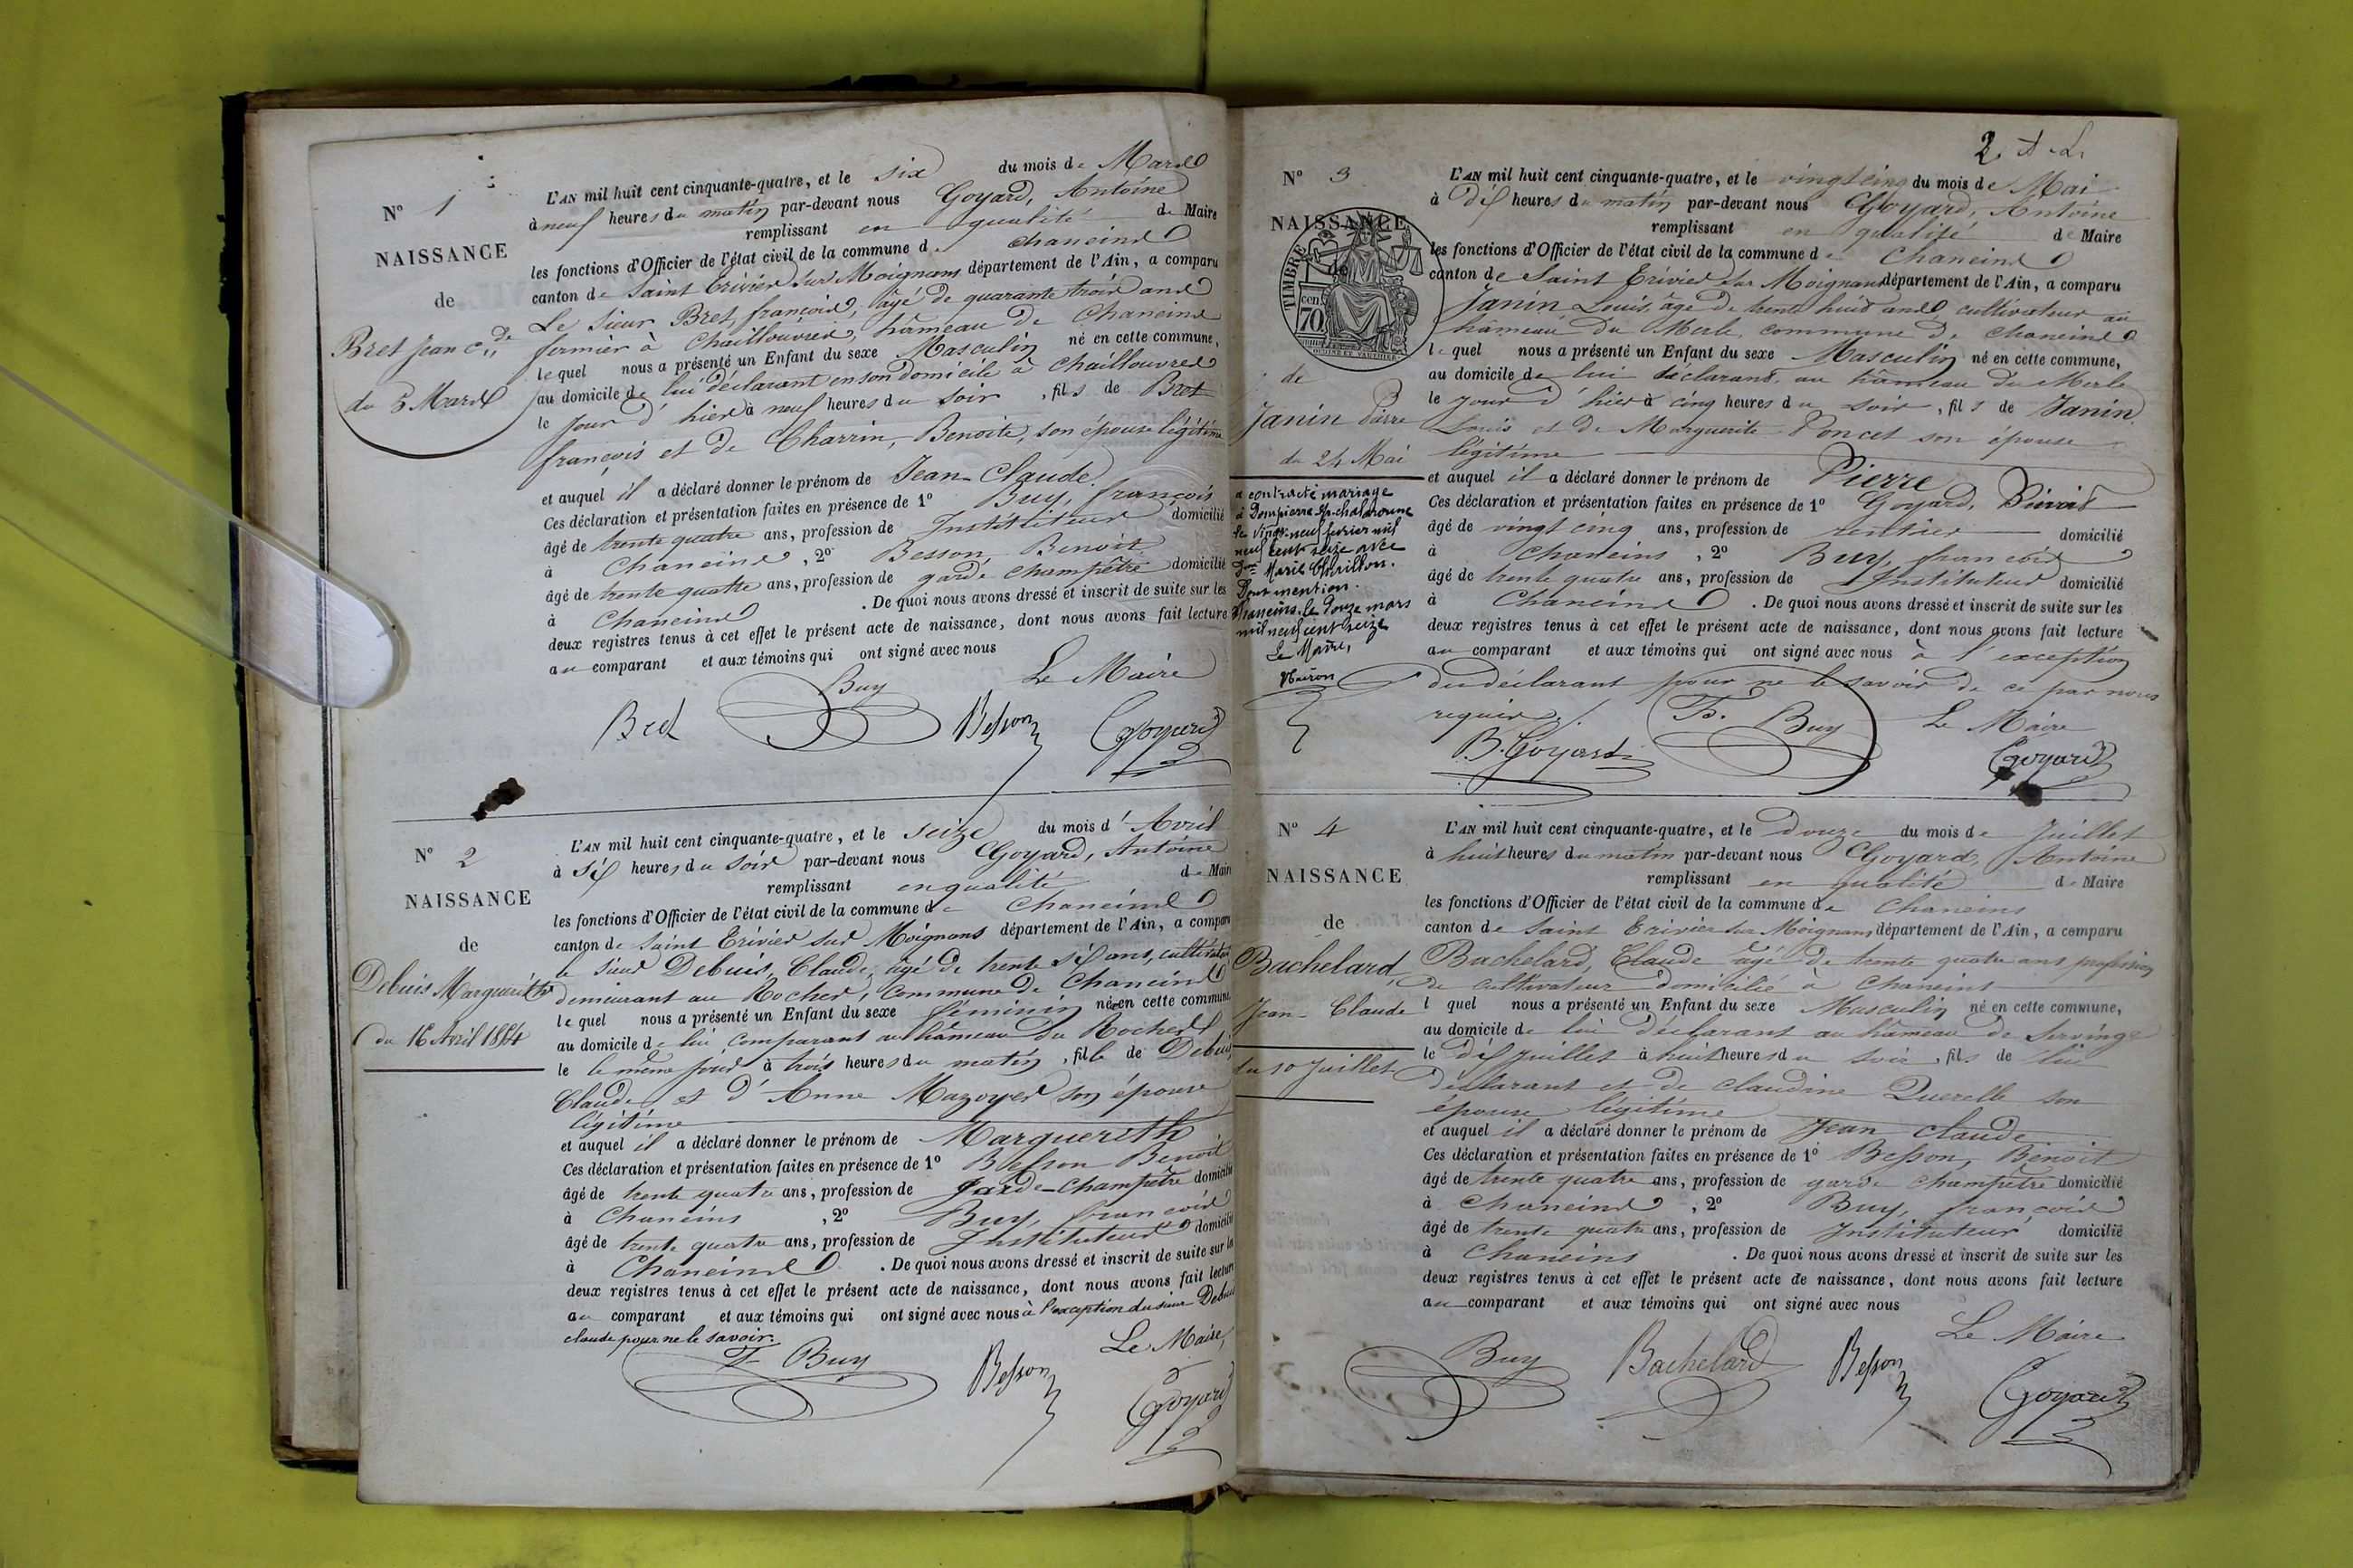 N° 1
NAISSANCE
de
Bret Jean C.de
du 5 Mars
L'AN mil huit cent cinquante-quatre, et le six du mois de Mars
à neuf heures du matin par-devant nous Goyard, Antoine
remplissant en qualité de Maire
les fonctions d'Officier de l'état civil de la commune de chaneins
canton de Saint Trivier sur Moignans département de l'Ain, a comparu
Le sieur Bret, françois, âgé de quarante trois ans
fermier à Chaillouvres, hâmeau de Chaneins
lequel nous a présenté un Enfant du sexe Masculin né en cette commune,
au domicile de lui déclarant en son domicile à Chaillouvres
le jour d'hier à neuf heures du soir, fils de Bret
françois et de Charrin, Benoite, son épouse légitime
et auquel il a déclaré donner le prénom de Jean-Claude
Ces déclaration et présentation faites en présence de 1° Buy, françois
âgé de trente quatre ans, profession de Instituteur domicilié
à Chaneins, 2° Besson Benoit
âgé de trente quatre ans, profession de garde champêtre domicilié
à Chaneins. De quoi nous avons dressé et inscrit de suite sur les
deux registres tenus à cet effet le présent acte de naissance, dont nous avons fait lecture
au comparant et aux témoins qui ont signé avec nous
Le Maire
Buy
Bret Besson Goyard
N° 2
NAISSANCE
de
Debuis Marguerith
du 16 Avril 1854
L'AN mil huit cent cinquante-quatre, et le seize du mois d'Avril
à six heures du soir par-devant nous Goyard, Antoine
remplissant en qualité de Maire
les fonctions d'Officier de l'état civil de la commune de Chaneins
canton de Saint Trivier sur Moignans département de l'Ain, a comparu
le sieur Debuis, Claude, âgé de trente six ans, cultivateur
demeurant au Rocher, commune de Chaneins
lequel nous a présenté un Enfant du sexe féminin né en cette commune,
au domicile de lui comparant au hâmeau du Rocher
le le même jour à trois heures du matin, fille de Debuis
Claude et d'Anne Mazoyer son épouse
légitime
et auquel il a déclaré donner le prénom de Marguerith
Ces déclaration et présentation faites en présence de 1° Besson Benoit
âgé de trente quatre ans, profession de garde-champêtre domicilié
à Chaneins, 2° Buy, françois
âgé de trente quatre ans, profession de Instituteur domicilié
à Chaneins. De quoi nous avons dressé et inscrit de suite sur les
deux registres tenus à cet effet le présent acte de naissance, dont nous avons fait lecture
au comparant et aux témoins qui ont signé avec nous à l'exception du sieur Debuis
claude pour ne le savoir.
Le Maire,
F. Buy Besson Goyard
2
N° 3
NAISSANCE
TIMBRE
70 cen
de
Janin Pierre
du 24 Mai
a contracté mariage
à Dompierre s/r chalaronne
le vingt-neuf février mil
neuf cent seize avec
Dme Marie Chevillon.
Dont mention.
Chaneins, le douze mars
mil neuf cent seize
Le Maire,
L'AN mil huit cent cinquante-quatre, et le vingt cinq du mois de Mai
à Dix heures du matin par-devant nous Goyard, Antoine
remplissant en qualité de Maire
les fonctions d'Officier de l'état civil de la commune de Chaneins
canton de Saint Trivier sur Moignans département de l'Ain, a comparu
Janin Louis, âgé de trente huit ans, cultivateur au
hâmeau du Merle, commune de Chaneins
lequel nous a présenté un Enfant du sexe Masculin né en cette commune,
au domicile de lui déclarant, au hâmeau du Merle
le jour d'hier à cinq heures du soir, fils de Janin
Louis et de Marguerite Poncet son épouse
légitime
et auquel il a déclaré donner le prénom de Pierre
Ces déclaration et présentation faites en présence de 1° Goyard, Benoit
âgé de vingt cinq ans, profession de rentier domicilié
à Chaneins, 2° Buy, françois
âgé de trente quatre ans, profession de Instituteur domicilié
à Chaneins. De quoi nous avons dressé et inscrit de suite sur les
deux registres tenus à cet effet le présent acte de naissance, dont nous avons fait lecture
au comparant et aux témoins qui ont signé avec nous à l'exception
du déclarant pour ne le savoir de ce par nous
requis ./.
Le Maire
B. Goyard F. Buy Goyard
N° 4
NAISSANCE
de
Bachelard,
Jean-Claude
du 10 Juillet
L'AN mil huit cent cinquante-quatre, et le Douze du mois de Juillet
à huit heures du matin par-devant nous Goyard, Antoine
remplissant en qualité de Maire
les fonctions d'Officier de l'état civil de la commune de Chaneins
canton de Saint Trivier sur Moignans département de l'Ain, a comparu
Bachelard, Claude âgé de trente quatre ans profession
de cultivateur domicilié à Chaneins
l quel nous a présenté un Enfant du sexe Masculin né en cette commune,
au domicile de lui déclarant au hâmeau de Servinge
le dix Juillet à huit heures du soir, fils de lui
déclarant et de Claudine Querelle son
épouse légitime
et auquel il a déclaré donner le prénom de Jean claude
Ces déclaration et présentation faites en présence de 1° Besson, Benoit
âgé de trente quatre ans, profession de garde champêtre domicilié
à Chaneins, 2° Buy, françois
âgé de trente quatre ans, profession de Instituteur domicilié
à Chaneins. De quoi nous avons dressé et inscrit de suite sur les
deux registres tenus à cet effet le présent acte de naissance, dont nous avons fait lecture
au comparant et aux témoins qui ont signé avec nous
Le Maire
Buy Bachelard Besson Goyard